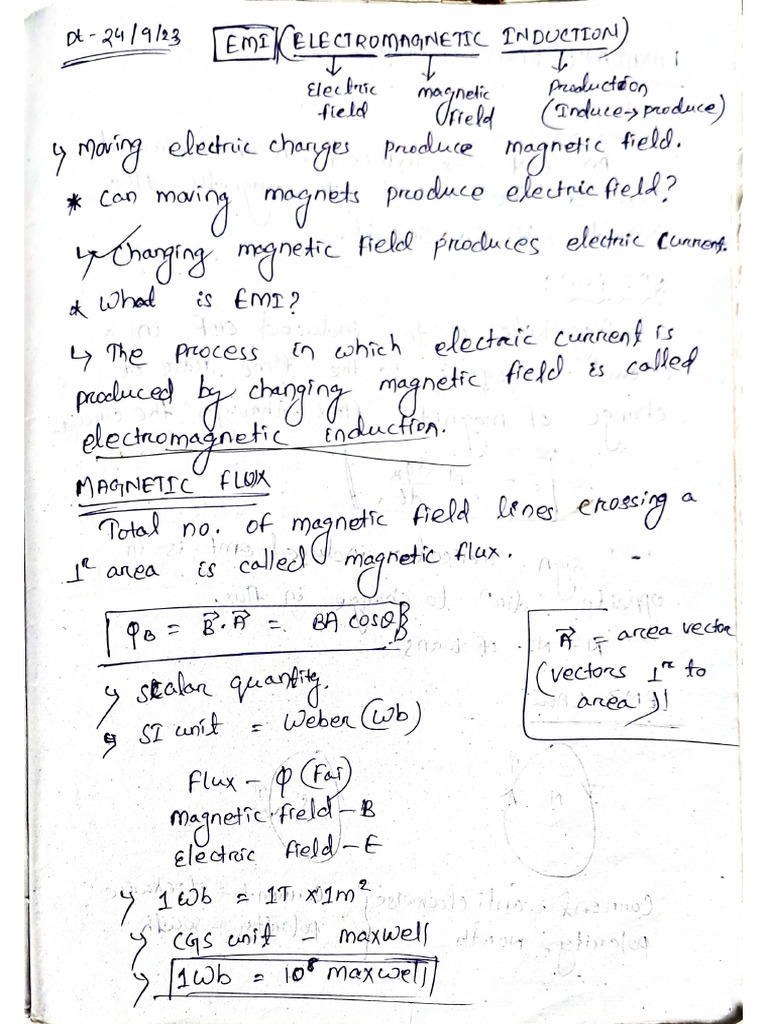 Dt - 24/9/23 EMI (ELECTROMAGNETIC INDUCTION)
Electric field magnetic field production (Induce → produce)
↳ Moving electric changes produce magnetic field.
* Can moving magnets produce electric field?
↳ Changing magnetic field produces electric current.
* What is EMI?
↳ The process in which electric current is
produced by changing magnetic field is called
electromagnetic induction.
MAGNETIC FLUX
Total no. of magnetic field lines crossing a
⊥r area is called magnetic flux.
φB = B⃗. A⃗ = BA cosθ
A⃗ = area vector
(vectors ⊥r to
area)
↳ Scalar quantity.
↳ SI unit = Weber (Wb)
Flux - φ (Fai)
Magnetic field - B
Electric field - E
↳ 1Wb = 1T × 1m²
↳ CGS unit - maxwell
↳ 1Wb = 10⁸ maxwell